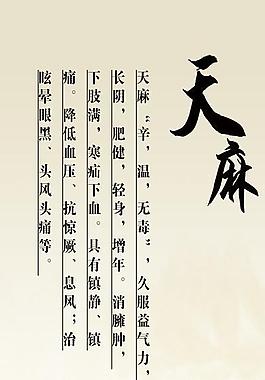 天麻
天麻“辛，温，无毒”，久服益气力，
长阴，肥健，轻身，增年。消臃肿，
下肢满，寒疝下血。具有镇静、镇
痛。降低血压、抗惊厥、息风；治
眩晕眼黑、头风头痛等。